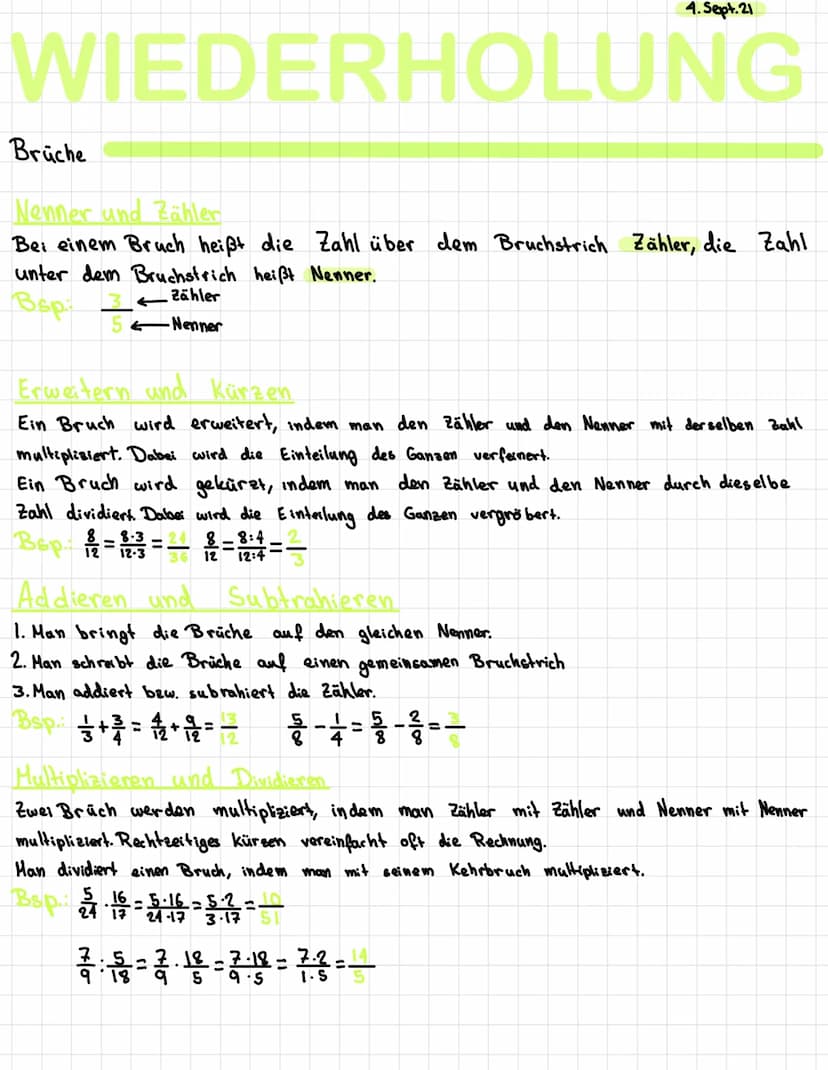 4. Sept. 21
WIEDERHOLUNG
Brüche
Nenner und Zähler
Bei einem Bruch heißt die Zahl über dem Bruchstrich Zähler, die Zahl
unter dem Bruchstrich heißt Nenner.
Bsp.: 3/5 ← Zähler
← Nenner
Erweitern und Kürzen
Ein Bruch wird erweitert, indem man den Zähler und den Nenner mit derselben Zahl
multipliziert. Dabei wird die Einteilung des Ganzen verfeinert.
Ein Bruch wird gekürzt, indem man den Zähler und den Nenner durch dieselbe
Zahl dividiert. Dabei wird die Einteilung des Ganzen vergröbert.
Bsp.: 8/12 = 8·3/12·3 = 24/36 8/12 = 8:4/12:4 = 2/3
Addieren und Subtrahieren
1. Man bringt die Brüche auf den gleichen Nenner.
2. Man schreibt die Brüche auf einen gemeinsamen Bruchstrich
3. Man addiert bzw. subrahiert die Zähler.
Bsp.: 1/3 + 3/4 = 4/12 + 9/12 = 13/12 5/8 - 1/4 = 5/8 - 2/8 = 3/8
Multiplizieren und Dividieren
Zwei Brüch werden multipliziert, indem man Zähler mit Zähler und Nenner mit Nenner
multipliziert. Rechtzeitiges kürzen vereinfacht oft die Rechnung.
Man dividiert einen Bruch, indem man mit seinem Kehrbruch multipliziert.
Bsp.: 5/24 · 16/17 = 5·16/24·17 = 5·2/3·17 = 10/51
7/9 : 5/18 = 7/9 · 18/5 = 7·18/9·5 = 7·2/1·5 = 14/5